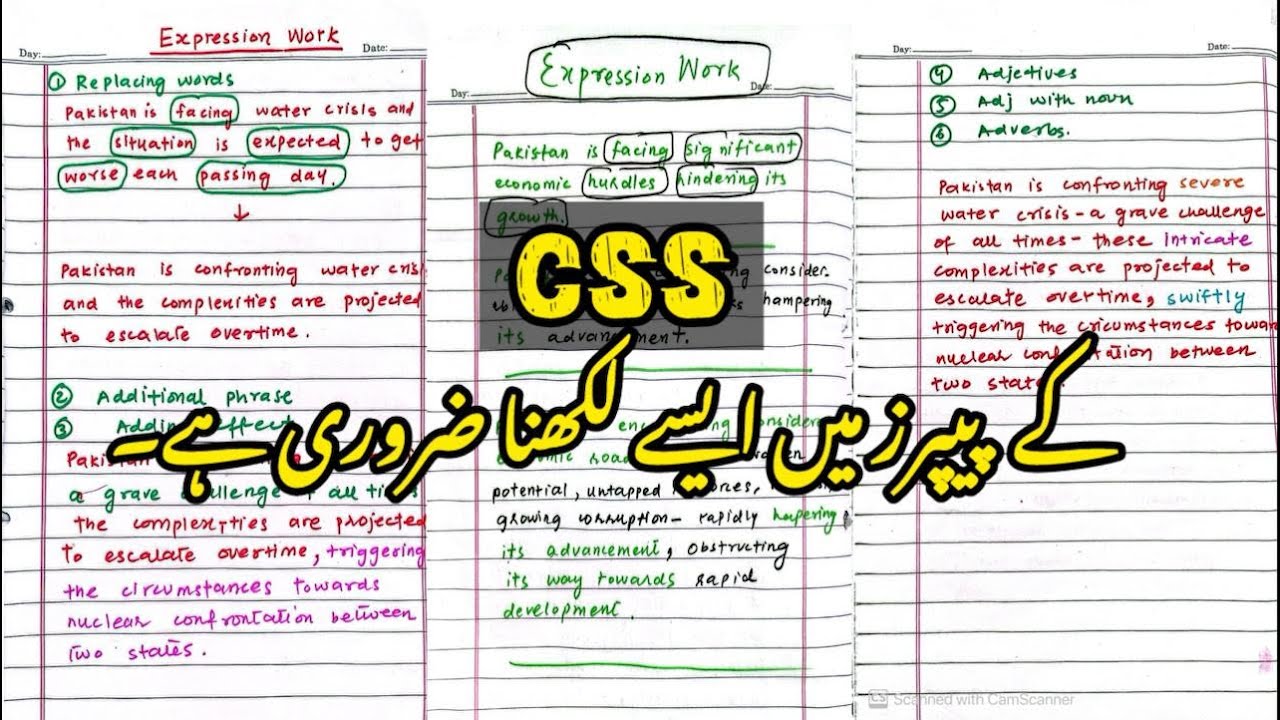 Expression Work
Day:
Date:
① Replacing words
Pakistan is facing water crisis and
the situation is expected to get
worse each passing day.
↓
Pakistan is confronting water
and the complexities are projected
to escalate overtime.
② Additional phrase
③
a grave challenge of all
the complexities are projected
to escalate overtime, triggering
the circumstances towards
nuclear confrontation between
two states.
Expression Work
Day:
Date:
Pakistan is facing significant
economic hurdles hindering its
growth.
consider.
hampering
its advancement.
potential, untapped
growing corruption– rapidly hapering
its advancement, obstructing
its way towards rapid
development.
Day:
Date:
④ Adjectives
⑤ Adj with noun
⑥ Adverbs.
Pakistan is confronting severe
water crisis - a grave challenge
of all times - these intricate
complexities are projected to
escalate overtime, swiftly
triggering the circumstances
nuclear between
two
CSS
کے پیپرز میں ایسے لکھنا ضروری ہے۔
CS Scanned with CamScanner